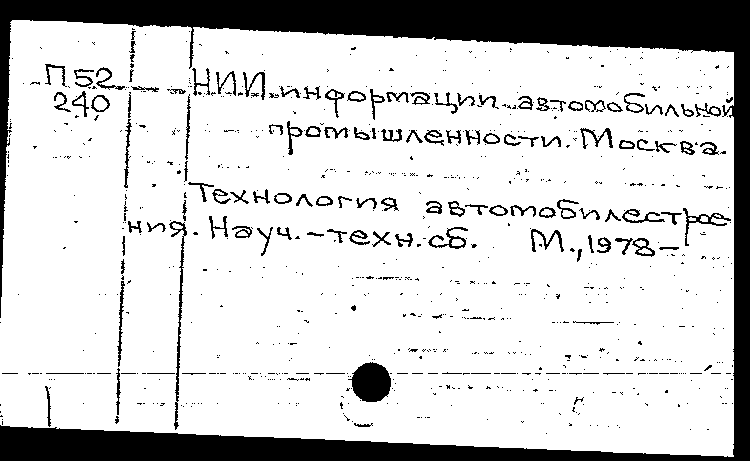 П52 НИИ информации автомобильной
240
промышленности. Москва.
Технология автомобилестрое-
ния. Науч.-техн. сб. М., 1978-